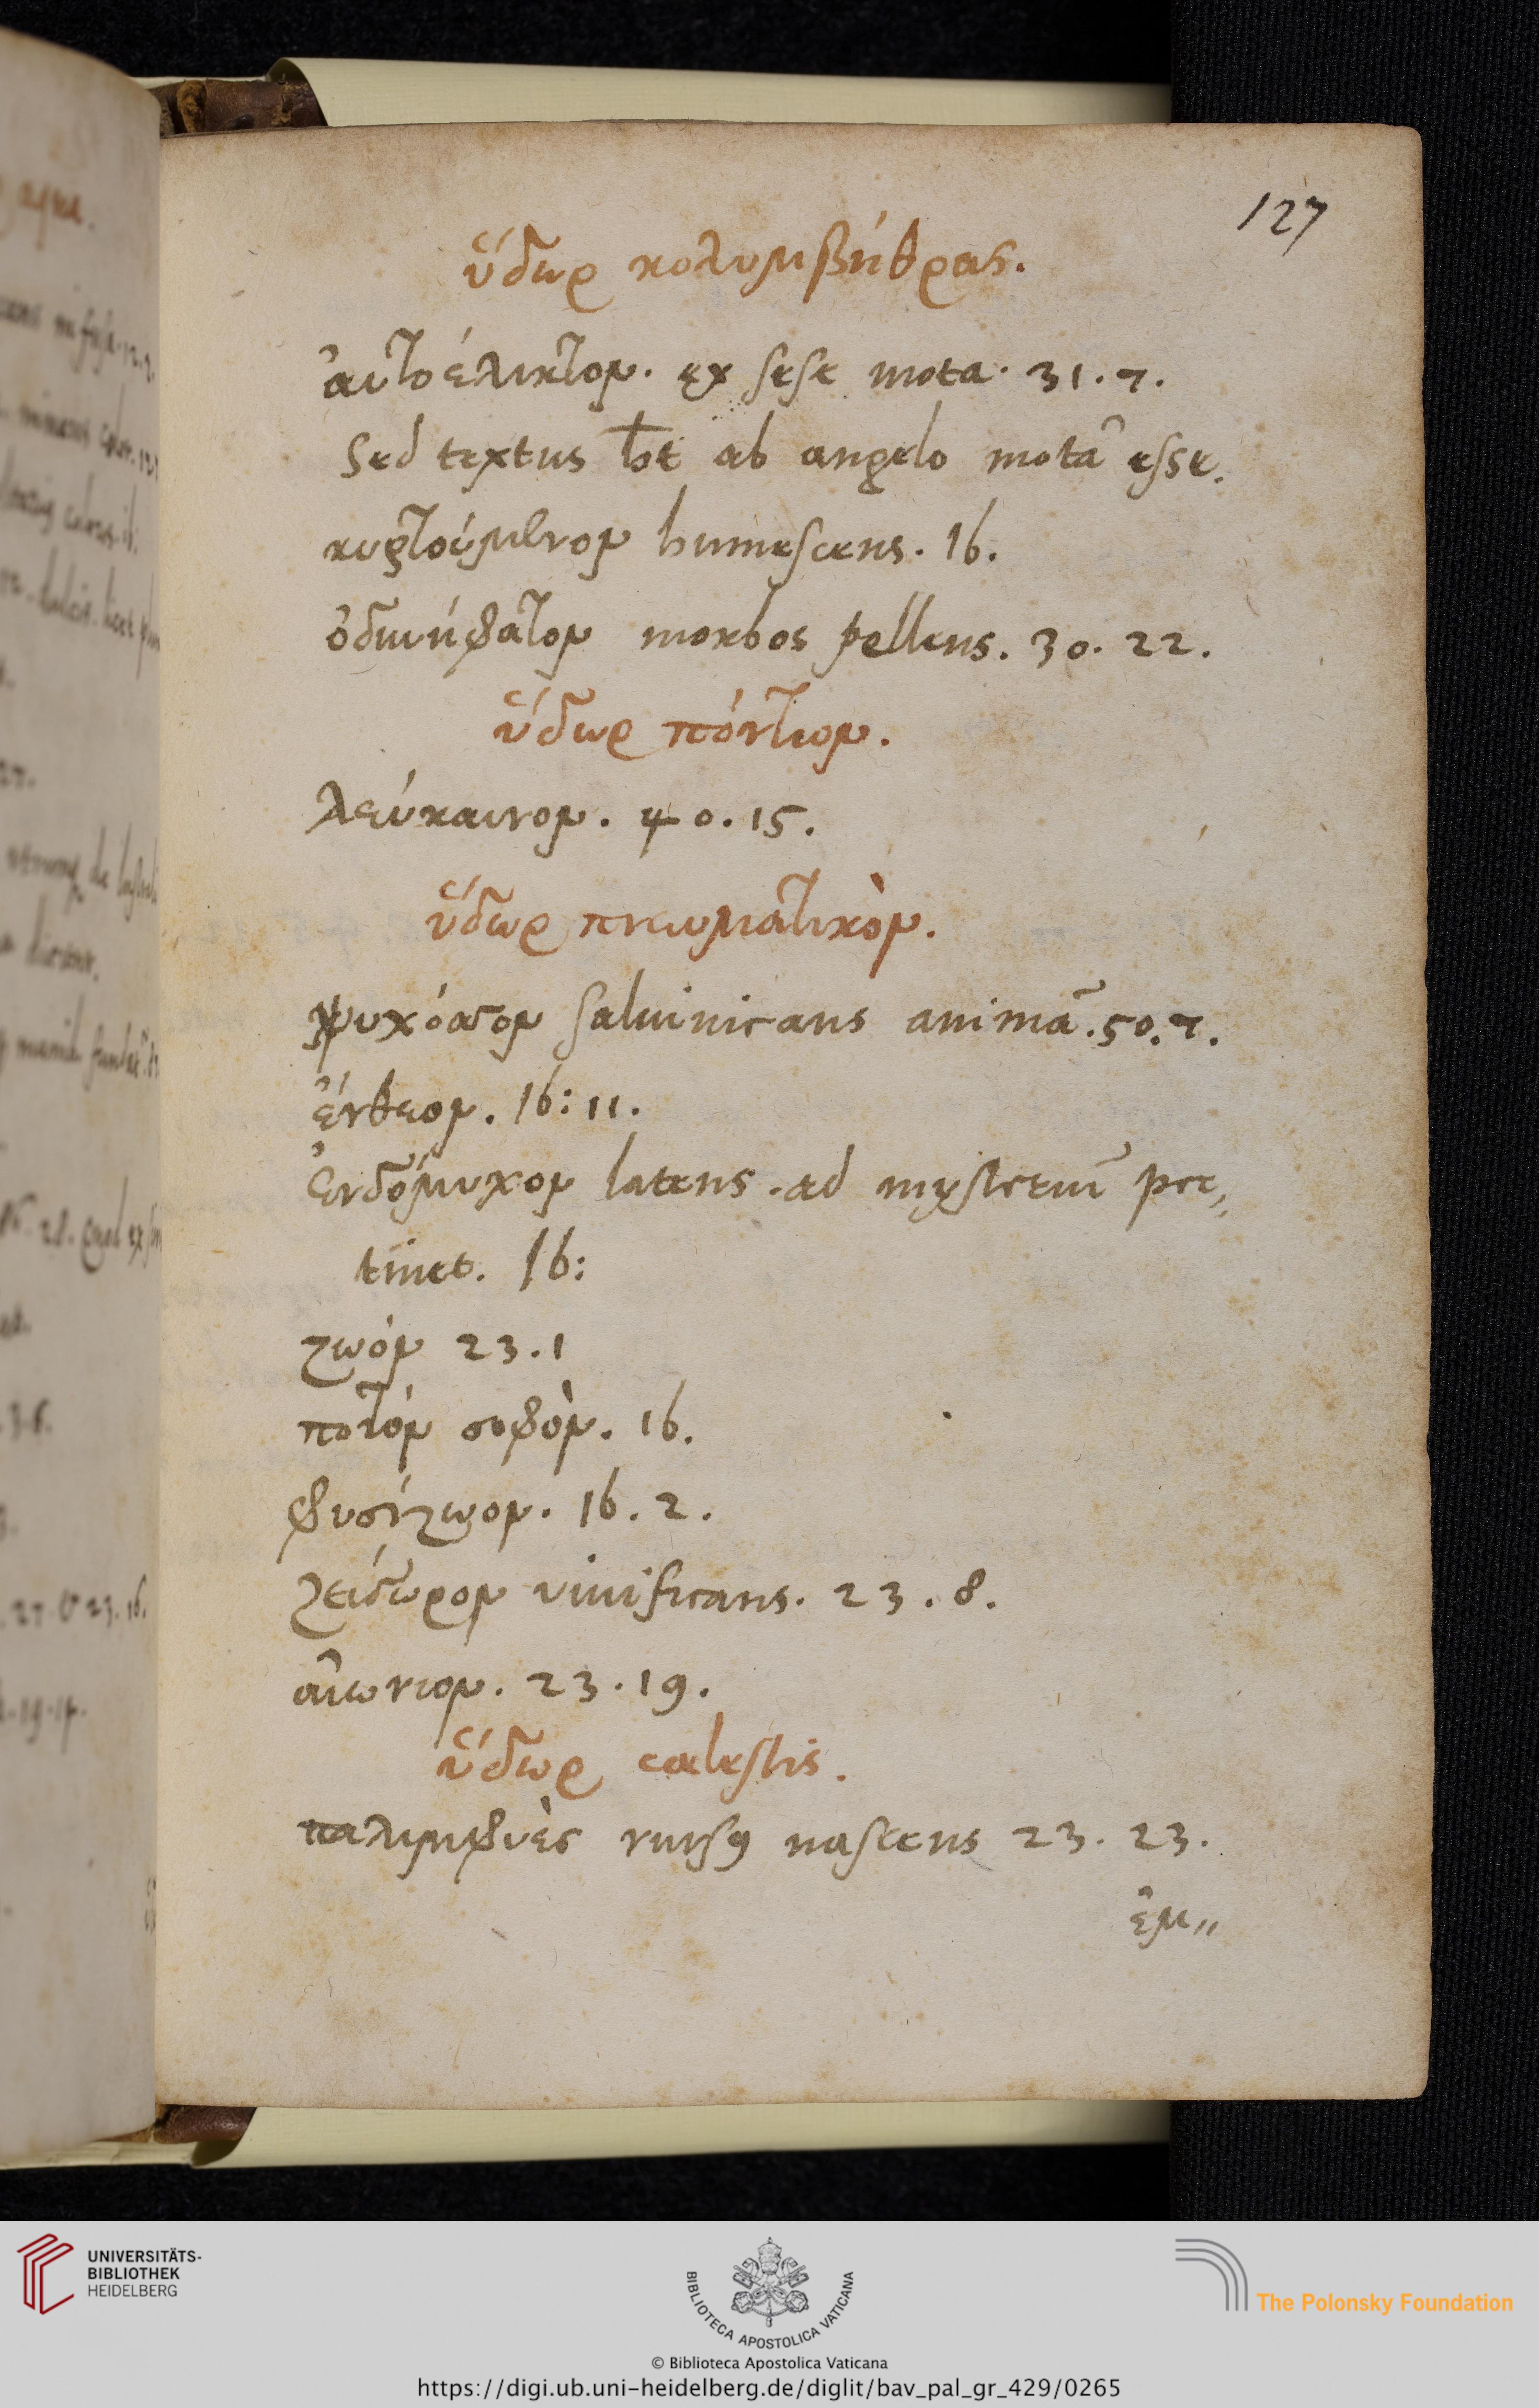 127
ὕδωρ κολυμβήθρας.
ἀυτοέλικτον. ex sese mota. 31.7.
Sed textus ħt ab angelo motā esse.
κυρτούμενον humescens. ib.
ὀδυνήφατον morbos pellens. 30. 22.
ὕδωρ πόντιον.
λεύκαινον. 40.15.
ὕδωρ πνευματικὸν.
ψυχόσσον animā. 50.7.
ἔνθεον. ib: 11.
ἐνδόμυχον latens. ad mysteriū per,,
tinet. ib:
ζωόν 23.1
ποτόν σοφὸν. ib.
φυσίζωον. ib. 2.
ζείδωρον vivificans. 23. 8.
αἰωνιον. 23.19.
ὕδωρ caelestis.
παλιμφυὲς rursꝰ nascens 23. 23.
ἐμ,,
UNIVERSITÄTS-
BIBLIOTHEK
HEIDELBERG
BIBLIOTECA APOSTOLICA VATICANA
© Biblioteca Apostolica Vaticana
The Polonsky Foundation
https://digi.ub.uni-heidelberg.de/diglit/bav_pal_gr_429/0265